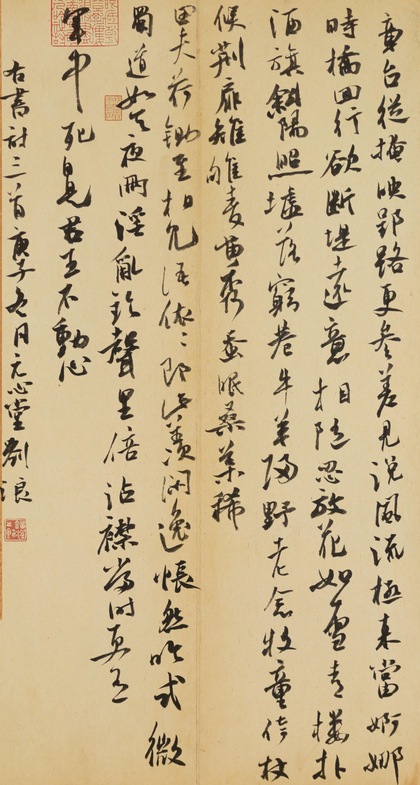 章台從掩映郢路更參差見說風流極來當婀娜
時橋回行欲斷堤遠意相隨忍放花如雪青樓扑
酒旗斜陽照墟落窮巷牛羊歸野老念牧童倚杖
候荊扉雉雊麥苗秀蠶眠桑葉稀
田夫荷鋤至相見語依〻即此羨閑逸悵然吟式微
蜀道如天夜雨淫亂鈴聲里倍沾襟當時更有
軍中死自是君王不動心
右書詩三首庚子冬月元心堂劉浪